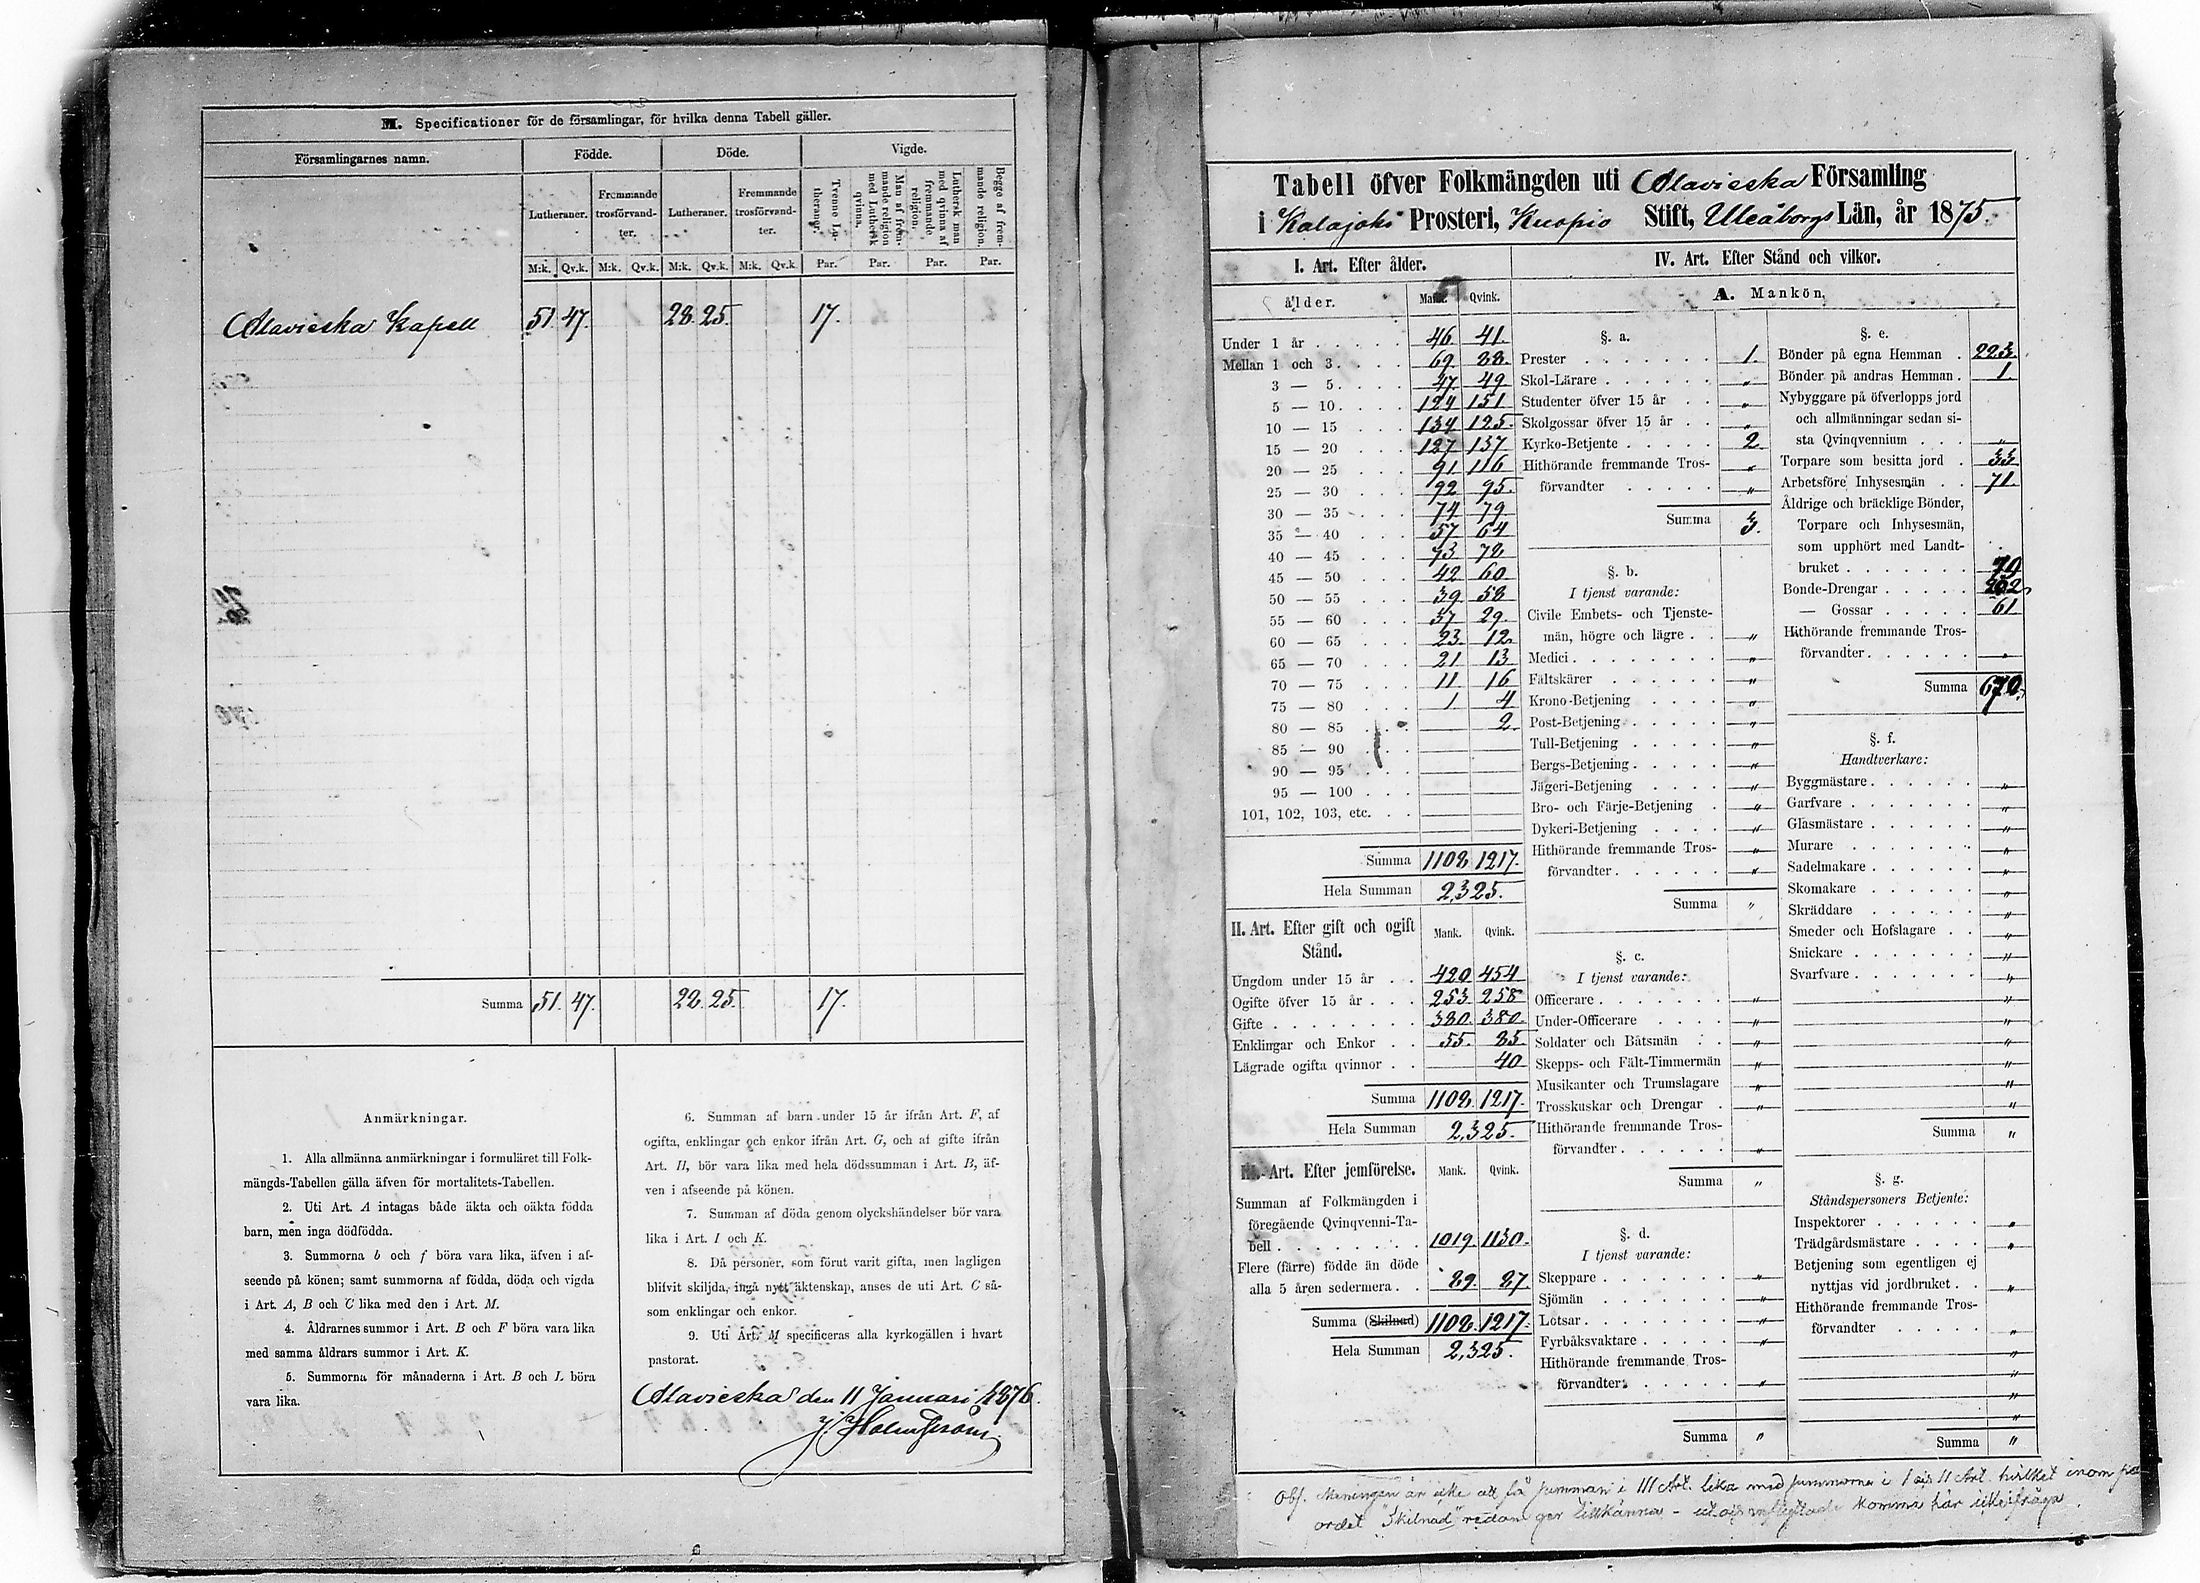 M. Specificationer för de församlingar, för hvilka denna Tabell gäller.
Församlingarnes namn. Födde. Döde. Vigde.
Lutheraner. Fremmande trosförvandter. Lutheraner. Fremmande trosförvandter. Tvenne Lutheraner. Man af fremmande religion med Luthersk qvinna. Luthersk man med qvinna af fremmande religion. Begge af fremmande religion.
M:k. Qv.k. M:k. Qv.k. M:k. Qv.k. M:k. Qv.k. Par. Par. Par. Par.
Alavieska Kapell 51. 47. 28. 25. 17.
Summa 51. 47. 28. 25. 17.
Anmärkningar.
1. Alla allmänna anmärkningar i formuläret till Folk-
mängds-Tabellen gälla äfven för mortalitets-Tabellen.
2. Uti Art. A intagas både äkta och oäkta födda
barn, men inga dödfödda.
3. Summorna b och f böra vara lika, äfven i af-
seende på könen; samt summorna af födda, döda och vigda
i Art. A, B och C lika med den i Art. M.
4. Åldrarnes summor i Art. B och F böra vara lika
med samma åldrars summor i Art. K.
5. Summorna för månaderna i Art. B och L böra
vara lika.
6. Summan af barn under 15 år ifrån Art. F, af
ogifta, enklingar och enkor ifrån Art. G, och af gifte ifrån
Art. H, bör vara lika med hela dödssumman i Art. B, äf-
ven i afseende på könen.
7. Summan af döda genom olyckshändelser bör vara
lika i Art. I och K.
8. Då personer, som förut varit gifta, men lagligen
blifvit skiljda, ingå nytt äktenskap, anses de uti Art. C så-
som enklingar och enkor.
9. Uti Art. M specificeras alla kyrkogällen i hvart
pastorat.
Alavieska den 11 Januari 1876.
J. Holmström
Tabell öfver Folkmängden uti Alavieska Församling
i Kalajoki Prosteri, Kuopio Stift, Uleåborgs Län, år 1875.
I. Art. Efter ålder.
ålder. Mank. Qvink.
Under 1 år 46. 41.
Mellan 1 och 3 69. 88.
3 — 5 47. 49.
5 — 10 124 151
10 — 15 134 125.
15 — 20 127 137
20 — 25 91 116
25 — 30 92 95.
30 — 35 74 79
35 — 40 57 64
40 — 45 43 78
45 — 50 42 60.
50 — 55 39 58
55 — 60 37 29.
60 — 65 23. 12.
65 — 70 21 13
70 — 75 11 16
75 — 80 1 4
80 — 85 2.
85 — 90
90 — 95
95 — 100
101, 102, 103, etc.
Summa 1108 1217.
Hela Summan 2,325.
II. Art. Efter gift och ogift Stånd. Mank. Qvink.
Ungdom under 15 år 420 454
Ogifte öfver 15 år 253 258
Gifte 380. 380.
Enklingar och Enkor 55. 85
Lägrade ogifta qvinnor 40
Summa 1108. 1217.
Hela Summan 2,325.
III. Art. Efter jemförelse. Mank. Qvink.
Summan af Folkmängden i
föregående Qvinqvenni-Ta-
bell 1019. 1130.
Flere (färre) födde än döde
alla 5 åren sedermera 89. 87.
Summa (Skilnad) 1108. 1217.
Hela Summan 2,325.
IV. Art. Efter Stånd och vilkor.
A. Mankön.
§. a.
Prester 1.
Skol-Lärare "
Studenter öfver 15 år "
Skolgossar öfver 15 år "
Kyrko-Betjente 2
Hithörande fremmande Tros- "
förvandter "
Summa 3.
§. b.
I tjenst varande:
Civile Embets- och Tjenste-
män, högre och lägre "
Medici "
Fältskärer "
Krono-Betjening "
Post-Betjening "
Tull-Betjening "
Bergs-Betjening "
Jägeri-Betjening "
Bro- och Färje-Betjening "
Dykeri-Betjening "
Hithörande fremmande Tros- "
förvandter "
Summa "
§. c.
I tjenst varande:
Officerare "
Under-Officerare "
Soldater och Båtsmän "
Skepps- och Fält-Timmermän "
Musikanter och Trumslagare "
Trosskuskar och Drengar "
Hithörande fremmande Tros-
förvandter "
Summa "
§. d.
I tjenst varande:
Skeppare "
Sjömän "
Lotsar "
Fyrbåksvaktare "
Hithörande fremmande Tros-
förvandter "
Summa "
§. e.
Bönder på egna Hemman 223.
Bönder på andras Hemman 1.
Nybyggare på öfverlopps jord
och allmänningar sedan si-
sta Qvinqvennium "
Torpare som besitta jord 33
Arbetsföre Inhysesmän 71.
Åldrige och bräcklige Bönder,
Torpare och Inhysesmän,
som upphört med Landt-
bruket 79
Bonde-Drengar 202
— Gossar 61
Hithörande fremmande Tros-
förvandter "
Summa 670.
§. f.
Handtverkare:
Byggmästare "
Garfvare "
Glasmästare "
Murare "
Sadelmakare "
Skomakare "
Skräddare "
Smeder och Hofslagare "
Snickare "
Svarfvare "
"
"
"
"
"
"
Summa "
§. g.
Ståndspersoners Betjente:
Inspektorer "
Trädgårdsmästare "
Betjening som egentligen ej
nyttjas vid jordbruket "
Hithörande fremmande Tros-
förvandter "
"
"
"
"
Summa "
Obs. Meningen är icke att få summan i III Art. lika med summorna i I och II Art. hvilket inom
ordet "Skilnad" redan ger tillkänna - komma här icke ifråga.